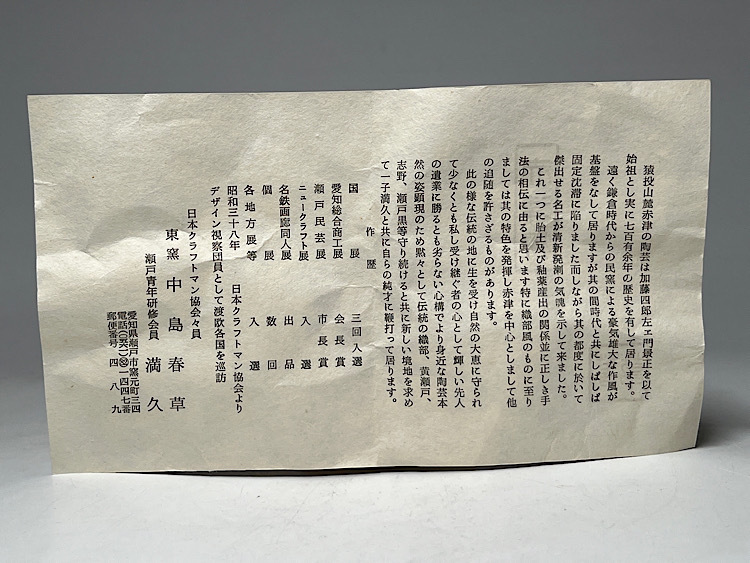 猿投山麓赤津の陶芸は加藤四郎左ェ門景正を以て
始祖とし実に七百有余年の歴史を有して居ります。
遠く鎌倉時代からの民窯による豪気雄大な作風が
基盤をなして居りますが其の間時代と共にしばしば
固定沈滞に陥りました而しながら其の都度に於いて
傑出せる名工が清新溌溂の気魂を示して来ました。
これ一つに胎土及び釉薬産出の関係並に正しき手
法の相伝に由ると思います特に織部風のものに至り
ましては其の特色を発揮し赤津を中心としまして他
の追随を許さざるものがあります。
此の様な伝統の地に生を受け自然の大恵に守られ
て少なくとも私し受け継ぐ者の心として輝しい先人
の遺業に勝るとも劣らない心構でより身近な陶芸本
然の姿顕現のため黙々として伝統の織部、黄瀬戸、
志野、瀬戸黒等守り続けると共に新しい境地を求め
て一子満久と共に自らの純才に鞭打って居ります。
作歴
国展 三回入選
愛知総合商工展 会長賞
瀬戸民芸展 市長賞
ニュークラフト展 入選
名鉄画廊同人展 出品
個展 数回
各地方展等 入選
昭和三十八年 日本クラフトマン協会より
デザイン視察団員として渡欧各国を巡訪
日本クラフトマン協会々員
東窯 中島春草
瀬戸青年研修会員 満久
愛知県瀬戸市窯元町三四
電話(〇五六一)(82)一四四七番
郵便番号 四八九